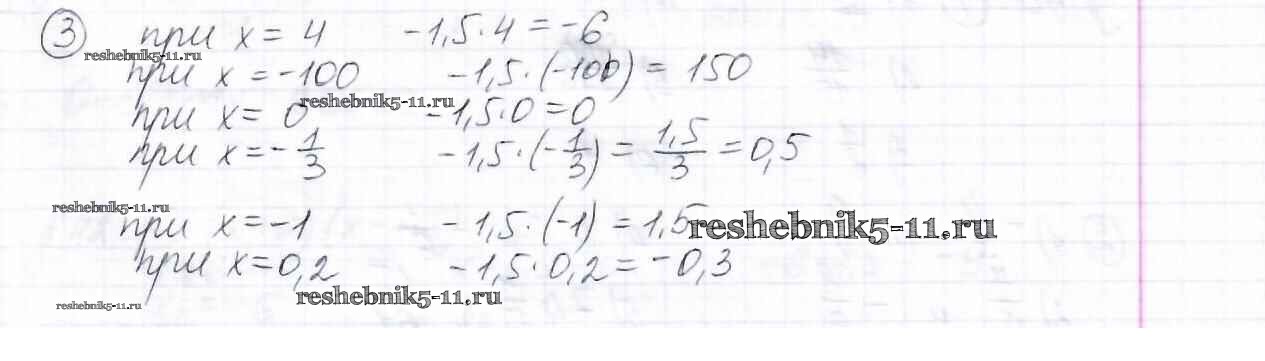 ③ при x = 4 -1,5·4 = -6
reshebnik5-11.ru
при x = -100 -1,5·(-100) = 150
reshebnik5-11.ru
при x = 0 -1,5·0 = 0
при x = -1/3 -1,5·(-1/3) = 1,5/3 = 0,5
reshebnik5-11.ru
при x = -1 -1,5·(-1) = 1,5
reshebnik5-11.ru
при x = 0,2 -1,5·0,2 = -0,3
reshebnik5-11.ru
reshebnik5-11.ru